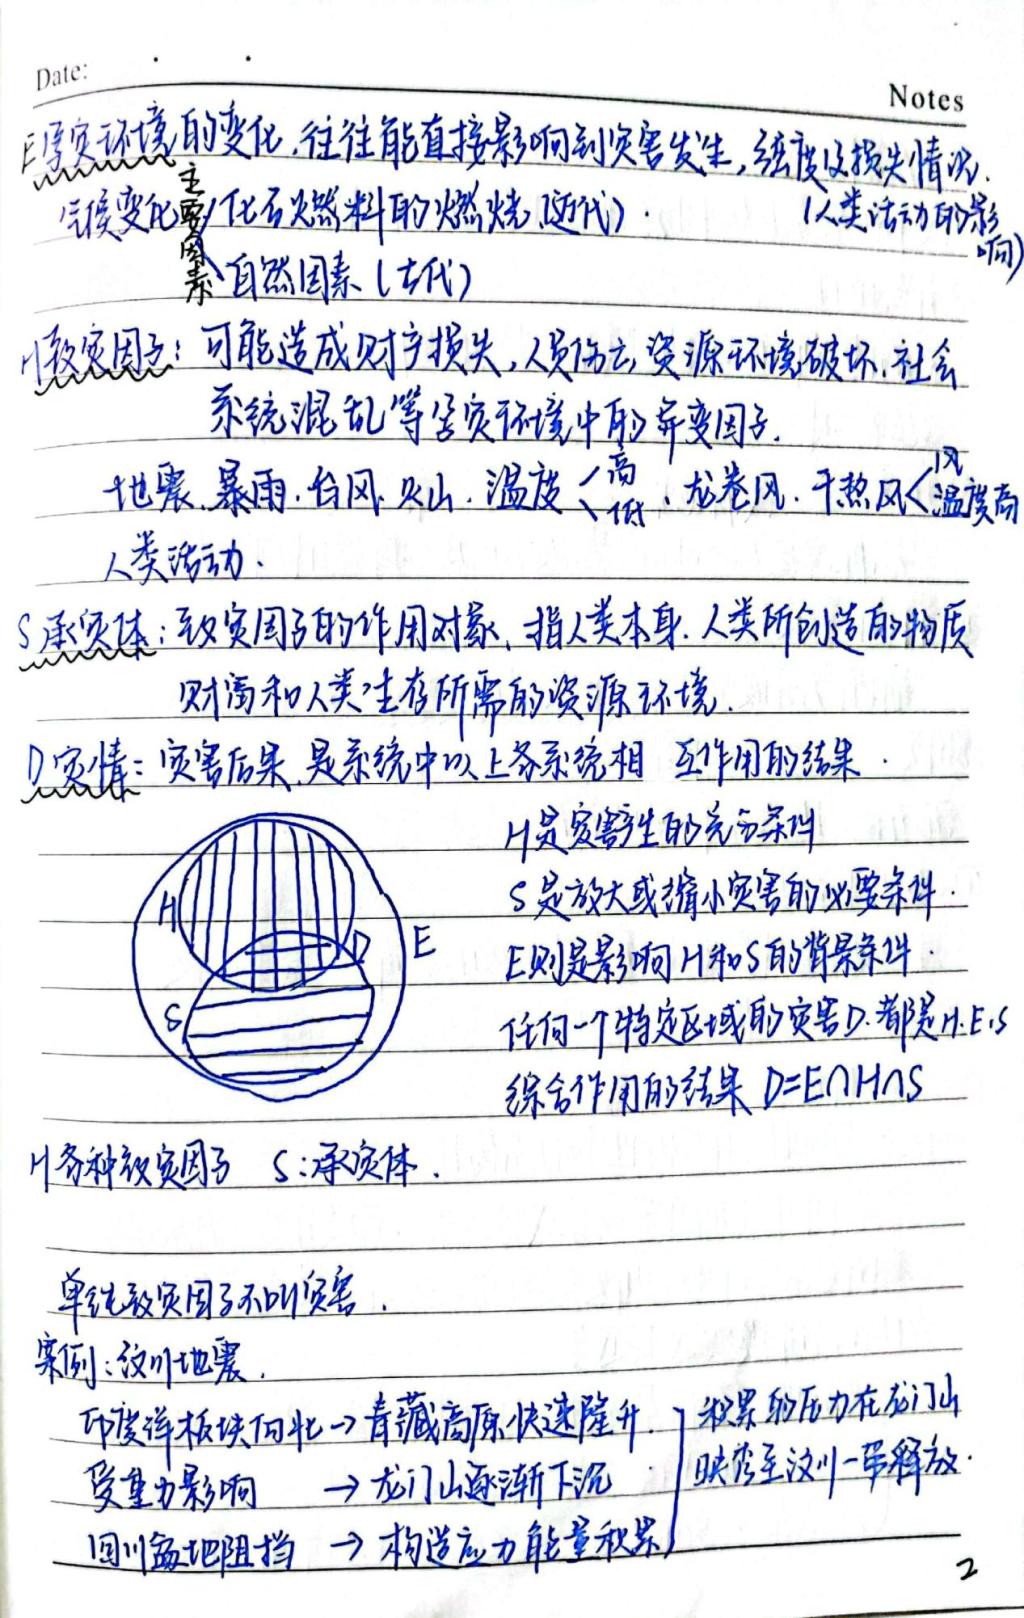 Date:
Notes
E孕灾环境的变化,往往能直接影响到灾害发生,强度及损失情况.
气候变化 主要因素 化石燃料的燃烧(近代). (人类活动的影响)
自然因素(古代)
H致灾因子:可能造成财产损失,人员伤亡,资源环境破坏,社会
系统混乱等孕灾环境中的异变因子.
地震.暴雨.台风.火山.温度<高 低.龙卷风.干热风<风 温度高
人类活动.
S承灾体:致灾因子的作用对象,指人类本身.人类所创造的物质
财富和人类生存所需的资源环境.
D灾情:灾害后果,是系统中以上各系统相 互作用的结果.
H是灾害产生的充分条件
S是放大或缩小灾害的必要条件.
E则是影响H和S的背景条件.
任何一个特定区域的灾害D.都是H.E.S
综合作用的结果 D=E∩H∩S
H
D
E
S
H各种致灾因子 S:承灾体.
单纯致灾因子不叫灾害.
案例:汶川地震.
印度洋板块向北→青藏高原快速隆升. 积累的压力在龙门山
受重力影响 →龙门山逐渐下沉 映秀至汶川一带释放.
四川盆地阻挡 →构造应力能量积累
2